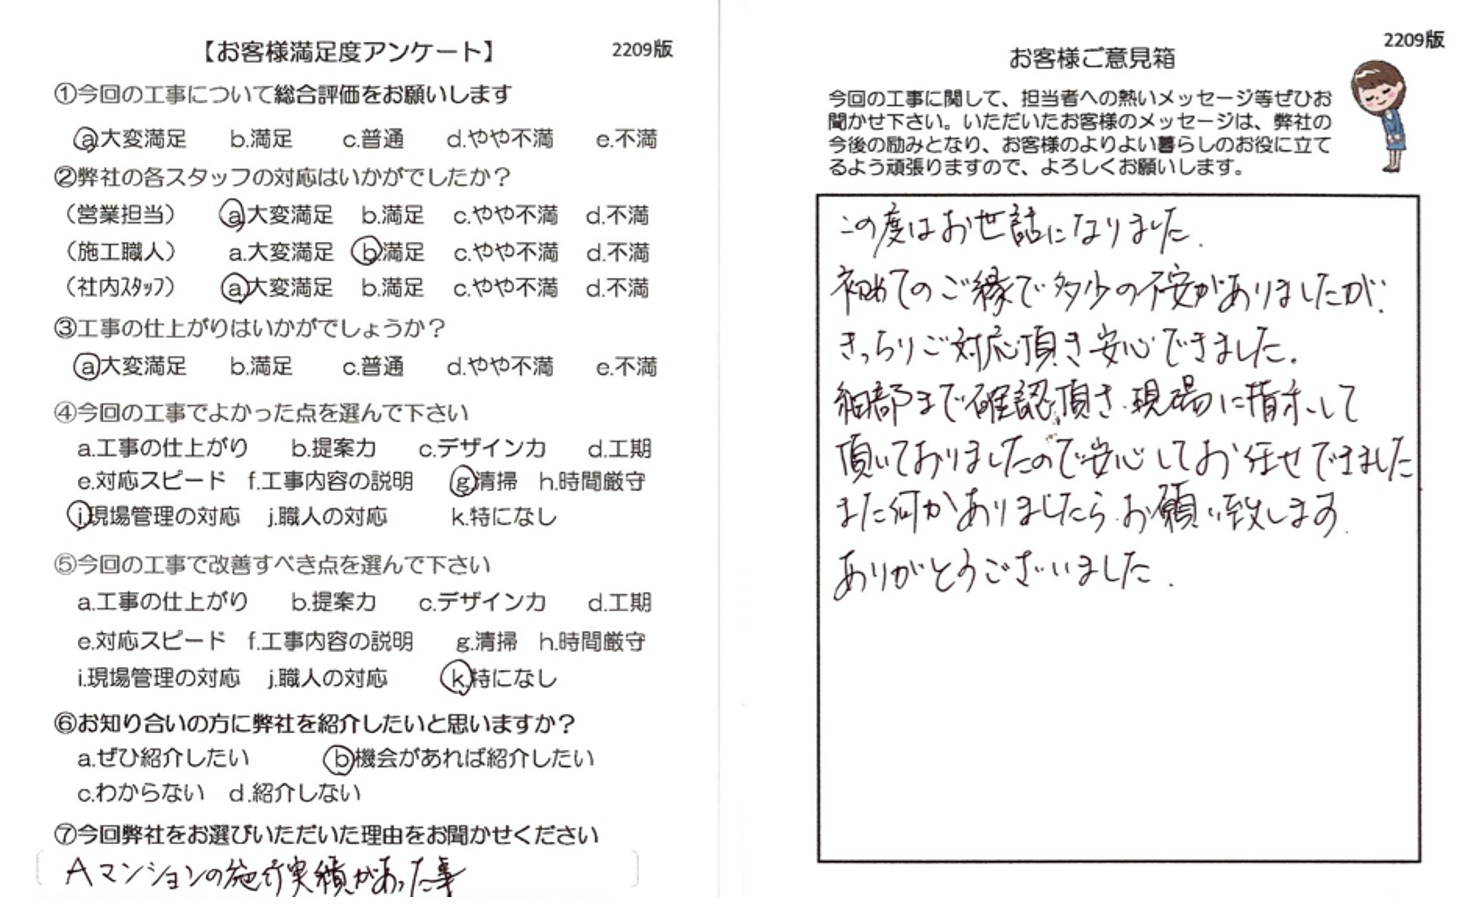 【お客様満足度アンケート】 2209版
①今回の工事について総合評価をお願いします
a.大変満足 b.満足 c.普通 d.やや不満 e.不満
②弊社の各スタッフの対応はいかがでしたか？
（営業担当） a.大変満足 b.満足 c.やや不満 d.不満
（施工職人） a.大変満足 b.満足 c.やや不満 d.不満
（社内ｽﾀｯﾌ） a.大変満足 b.満足 c.やや不満 d.不満
③工事の仕上がりはいかがでしょうか？
a.大変満足 b.満足 c.普通 d.やや不満 e.不満
④今回の工事でよかった点を選んで下さい
a.工事の仕上がり b.提案力 c.デザイン力 d.工期
e.対応スピード f.工事内容の説明 g.清掃 h.時間厳守
i.現場管理の対応 j.職人の対応 k.特になし
⑤今回の工事で改善すべき点を選んで下さい
a.工事の仕上がり b.提案力 c.デザイン力 d.工期
e.対応スピード f.工事内容の説明 g.清掃 h.時間厳守
i.現場管理の対応 j.職人の対応 k.特になし
⑥お知り合いの方に弊社を紹介したいと思いますか？
a.ぜひ紹介したい b.機会があれば紹介したい
c.わからない d.紹介しない
⑦今回弊社をお選びいただいた理由をお聞かせください
Aマンションの施行実績があった事
2209版
お客様ご意見箱
今回の工事に関して、担当者への熱いメッセージ等ぜひお
聞かせ下さい。いただいたお客様のメッセージは、弊社の
今後の励みとなり、お客様のよりよい暮らしのお役に立て
るよう頑張りますので、よろしくお願いします。
この度はお世話になりました.
初めてのご縁で多少の不安がありましたが.
きっちりご対応頂き安心できました.
細部まで確認頂き.現場に指示して
頂いておりましたので安心してお任せできました
また何かありましたら.お願い致します.
ありがとうございました.